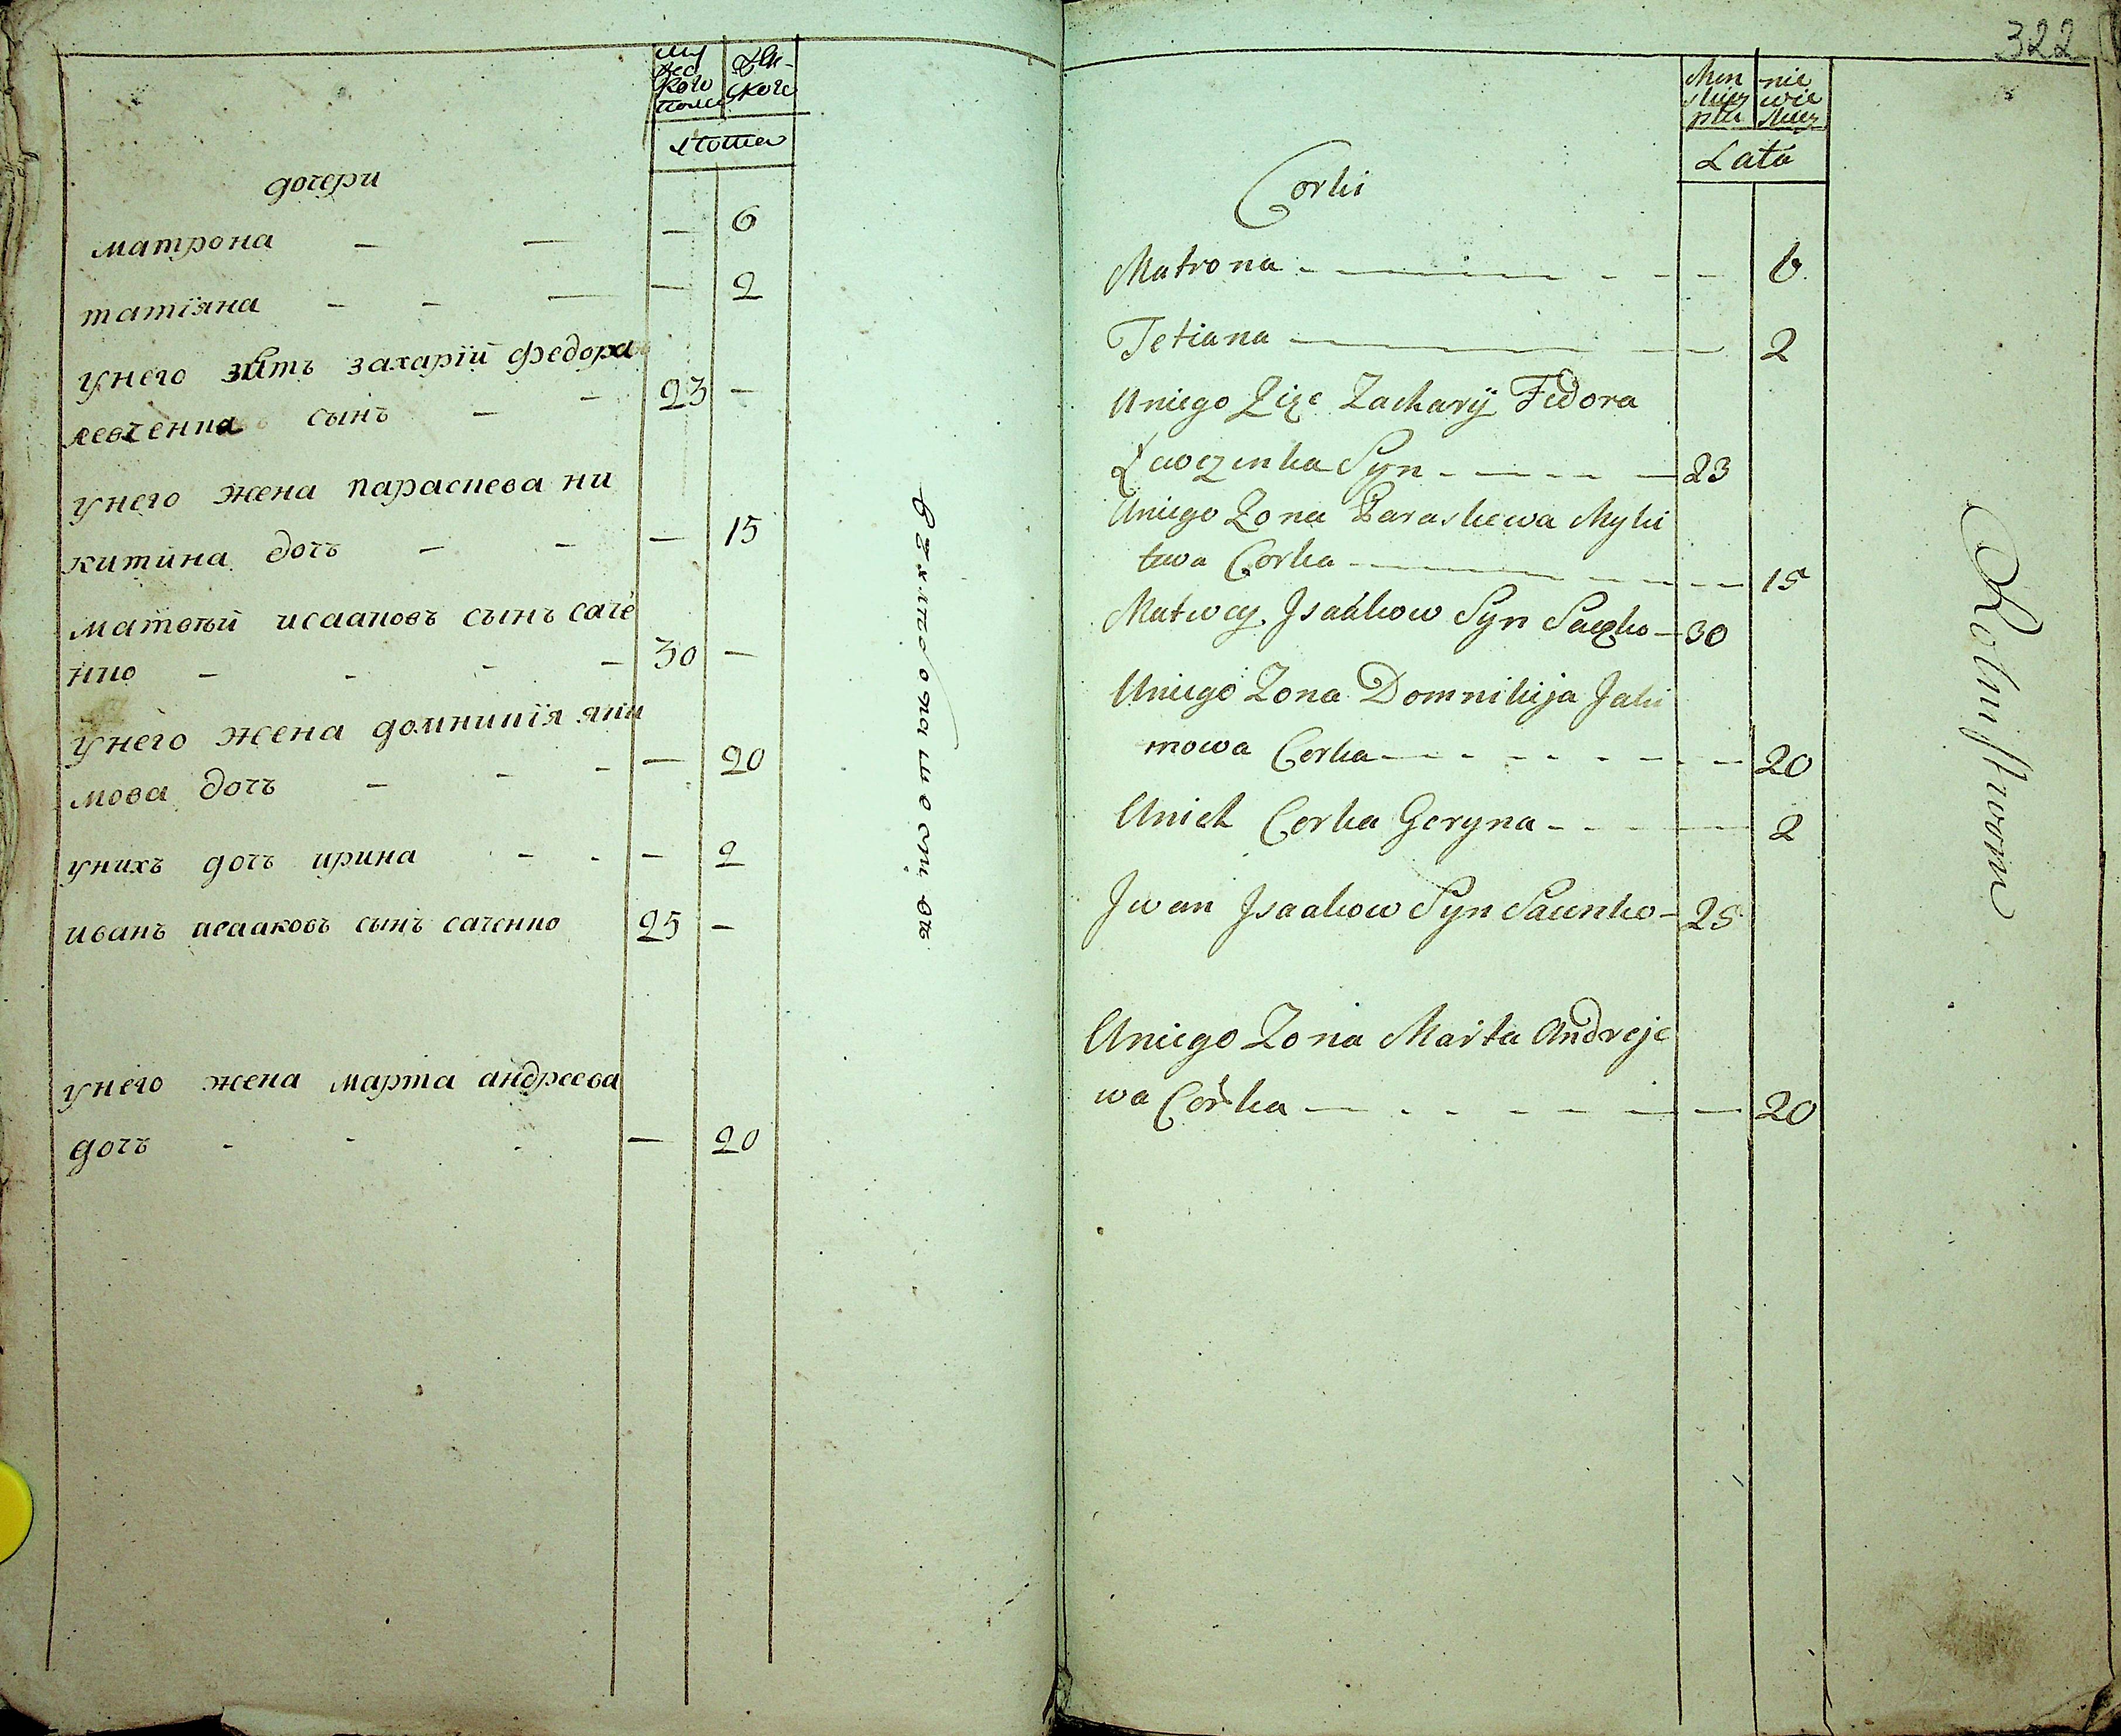 Муже
ского
пола
Жен-
ского
Лѣта
дочери
матрона — — — 6
татіяна - - — — 2
у него зять захарій федора
левченка сынъ - - 23 —
у него жена параскева ни
китина дочъ - - — 15
матвѣй исааковъ сынъ саче
нко - - - — 30 —
у него жена домникія яки
мова дочъ - - - — 20
у нихъ дочъ ирина - - — 2
иванъ исааковъ сынъ саченко 25 —
у него жена марта андреева
дочъ - - - — 20
322
Men
skiey
płci
nie
wie
skiey
Lata
Corki
Matrona - — — - - - 6
Tetiana — — — — 2
U niego Zięc Zachary Fedora
Lewczenka Syn - - - - - 23
U niego Zona Paraskewa Myki
towa Corka - - - - - — 15
Matwey Isaakow Syn Saczko — 30
U niego Zona Domnikija Jaki
mowa Corka — - - - - - - — 20
U nich Corka Geryna - - - - — 2
Iwan Isaakow Syn Saczenko - 25
U niego Zona Marta Andreje
wa Corka — - - - - — — 20
Rolnistwom